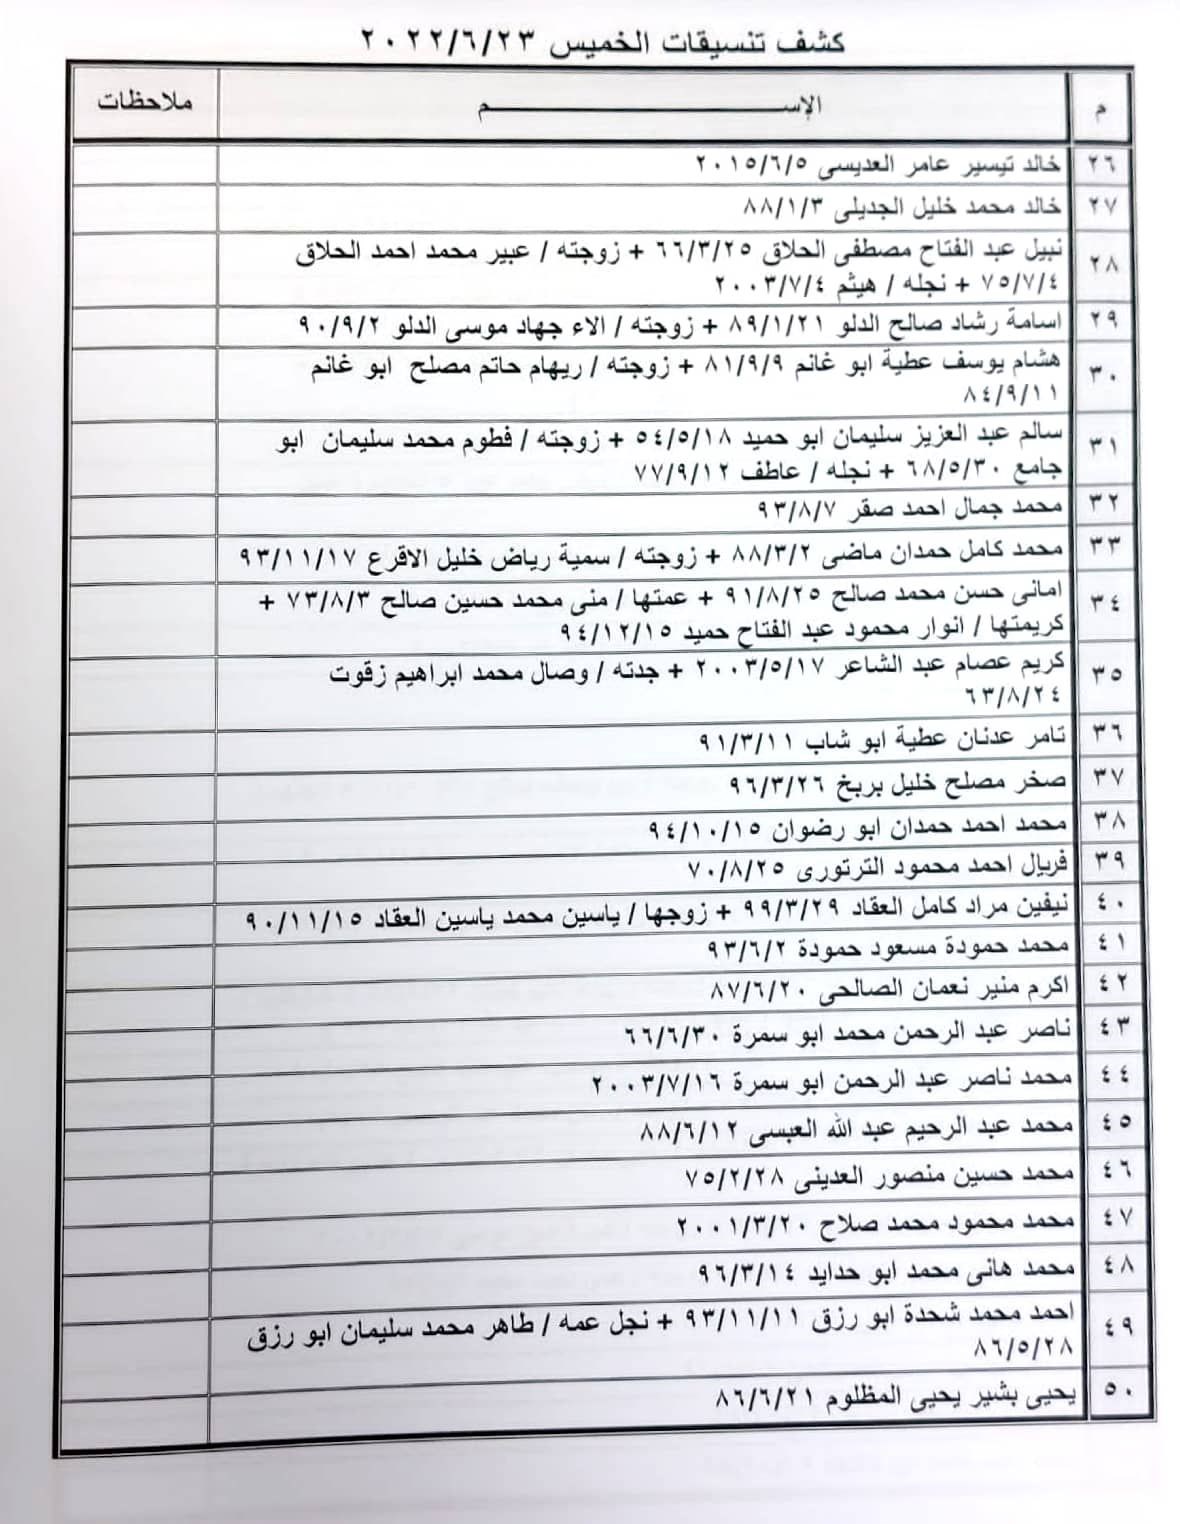 كشف تنسيقات الخميس ٢٠٢٢/٦/٢٣
م الإســـــــــم ملاحظات
٢٦ خالد تيسير عامر العديسى ٢٠١٥/٦/٥
٢٧ خالد محمد خليل الجديلى ٨٨/١/٣
٢٨ نبيل عبد الفتاح مصطفى الحلاق ٦٦/٣/٢٥ + زوجته / عبير محمد احمد الحلاق
٧٥/٧/٤ + نجله / هيثم ٢٠٠٣/٧/٤
٢٩ اسامة رشاد صالح الدلو ٨٩/١/٢١ + زوجته / الاء جهاد موسى الدلو ٩٠/٩/٢
٣٠ هشام يوسف عطية ابو غانم ٨١/٩/٩ + زوجته / ريهام حاتم مصلح ابو غانم
٨٤/٩/١١
٣١ سالم عبد العزيز سليمان ابو حميد ٥٤/٥/١٨ + زوجته / فطوم محمد سليمان ابو
جامع ٦٨/٥/٣٠ + نجله / عاطف ٧٧/٩/١٢
٣٢ محمد جمال احمد صقر ٩٣/٨/٧
٣٣ محمد كامل حمدان ماضى ٨٨/٣/٢ + زوجته / سمية رياض خليل الاقرع ٩٣/١١/١٧
٣٤ امانى حسن محمد صالح ٩١/٨/٢٥ + عمتها / منى محمد حسين صالح ٧٣/٨/٣ +
كريمتها / انوار محمود عبد الفتاح حميد ٩٤/١٢/١٥
٣٥ كريم عصام عبد الشاعر ٢٠٠٣/٥/١٧ + جدته / وصال محمد ابراهيم زقوت
٦٣/٨/٢٤
٣٦ تامر عدنان عطية ابو شاب ٩١/٣/١١
٣٧ صخر مصلح خليل بربخ ٩٦/٣/٢٦
٣٨ محمد احمد حمدان ابو رضوان ٩٤/١٠/١٥
٣٩ فريال احمد محمود الترتورى ٧٠/٨/٢٥
٤٠ نيفين مراد كامل العقاد ٩٩/٣/٢٩ + زوجها / ياسين محمد ياسين العقاد ٩٠/١١/١٥
٤١ محمد حمودة مسعود حمودة ٩٣/٦/٢
٤٢ اكرم منير نعمان الصالحى ٨٧/٦/٢٠
٤٣ ناصر عبد الرحمن محمد ابو سمرة ٦٦/٦/٣٠
٤٤ محمد ناصر عبد الرحمن ابو سمرة ٢٠٠٣/٧/١٦
٤٥ محمد عبد الرحيم عبد الله العبسى ٨٨/٦/١٢
٤٦ محمد حسين منصور العدينى ٧٥/٢/٢٨
٤٧ محمد محمود محمد صلاح ٢٠٠١/٣/٢٠
٤٨ محمد هانى محمد ابو حدايد ٩٦/٣/١٤
٤٩ احمد محمد شحدة ابو رزق ٩٣/١١/١١ + نجل عمه / طاهر محمد سليمان ابو رزق
٨٦/٥/٢٨
٥٠ يحيى بشير يحيى المظلوم ٨٦/٦/٢١